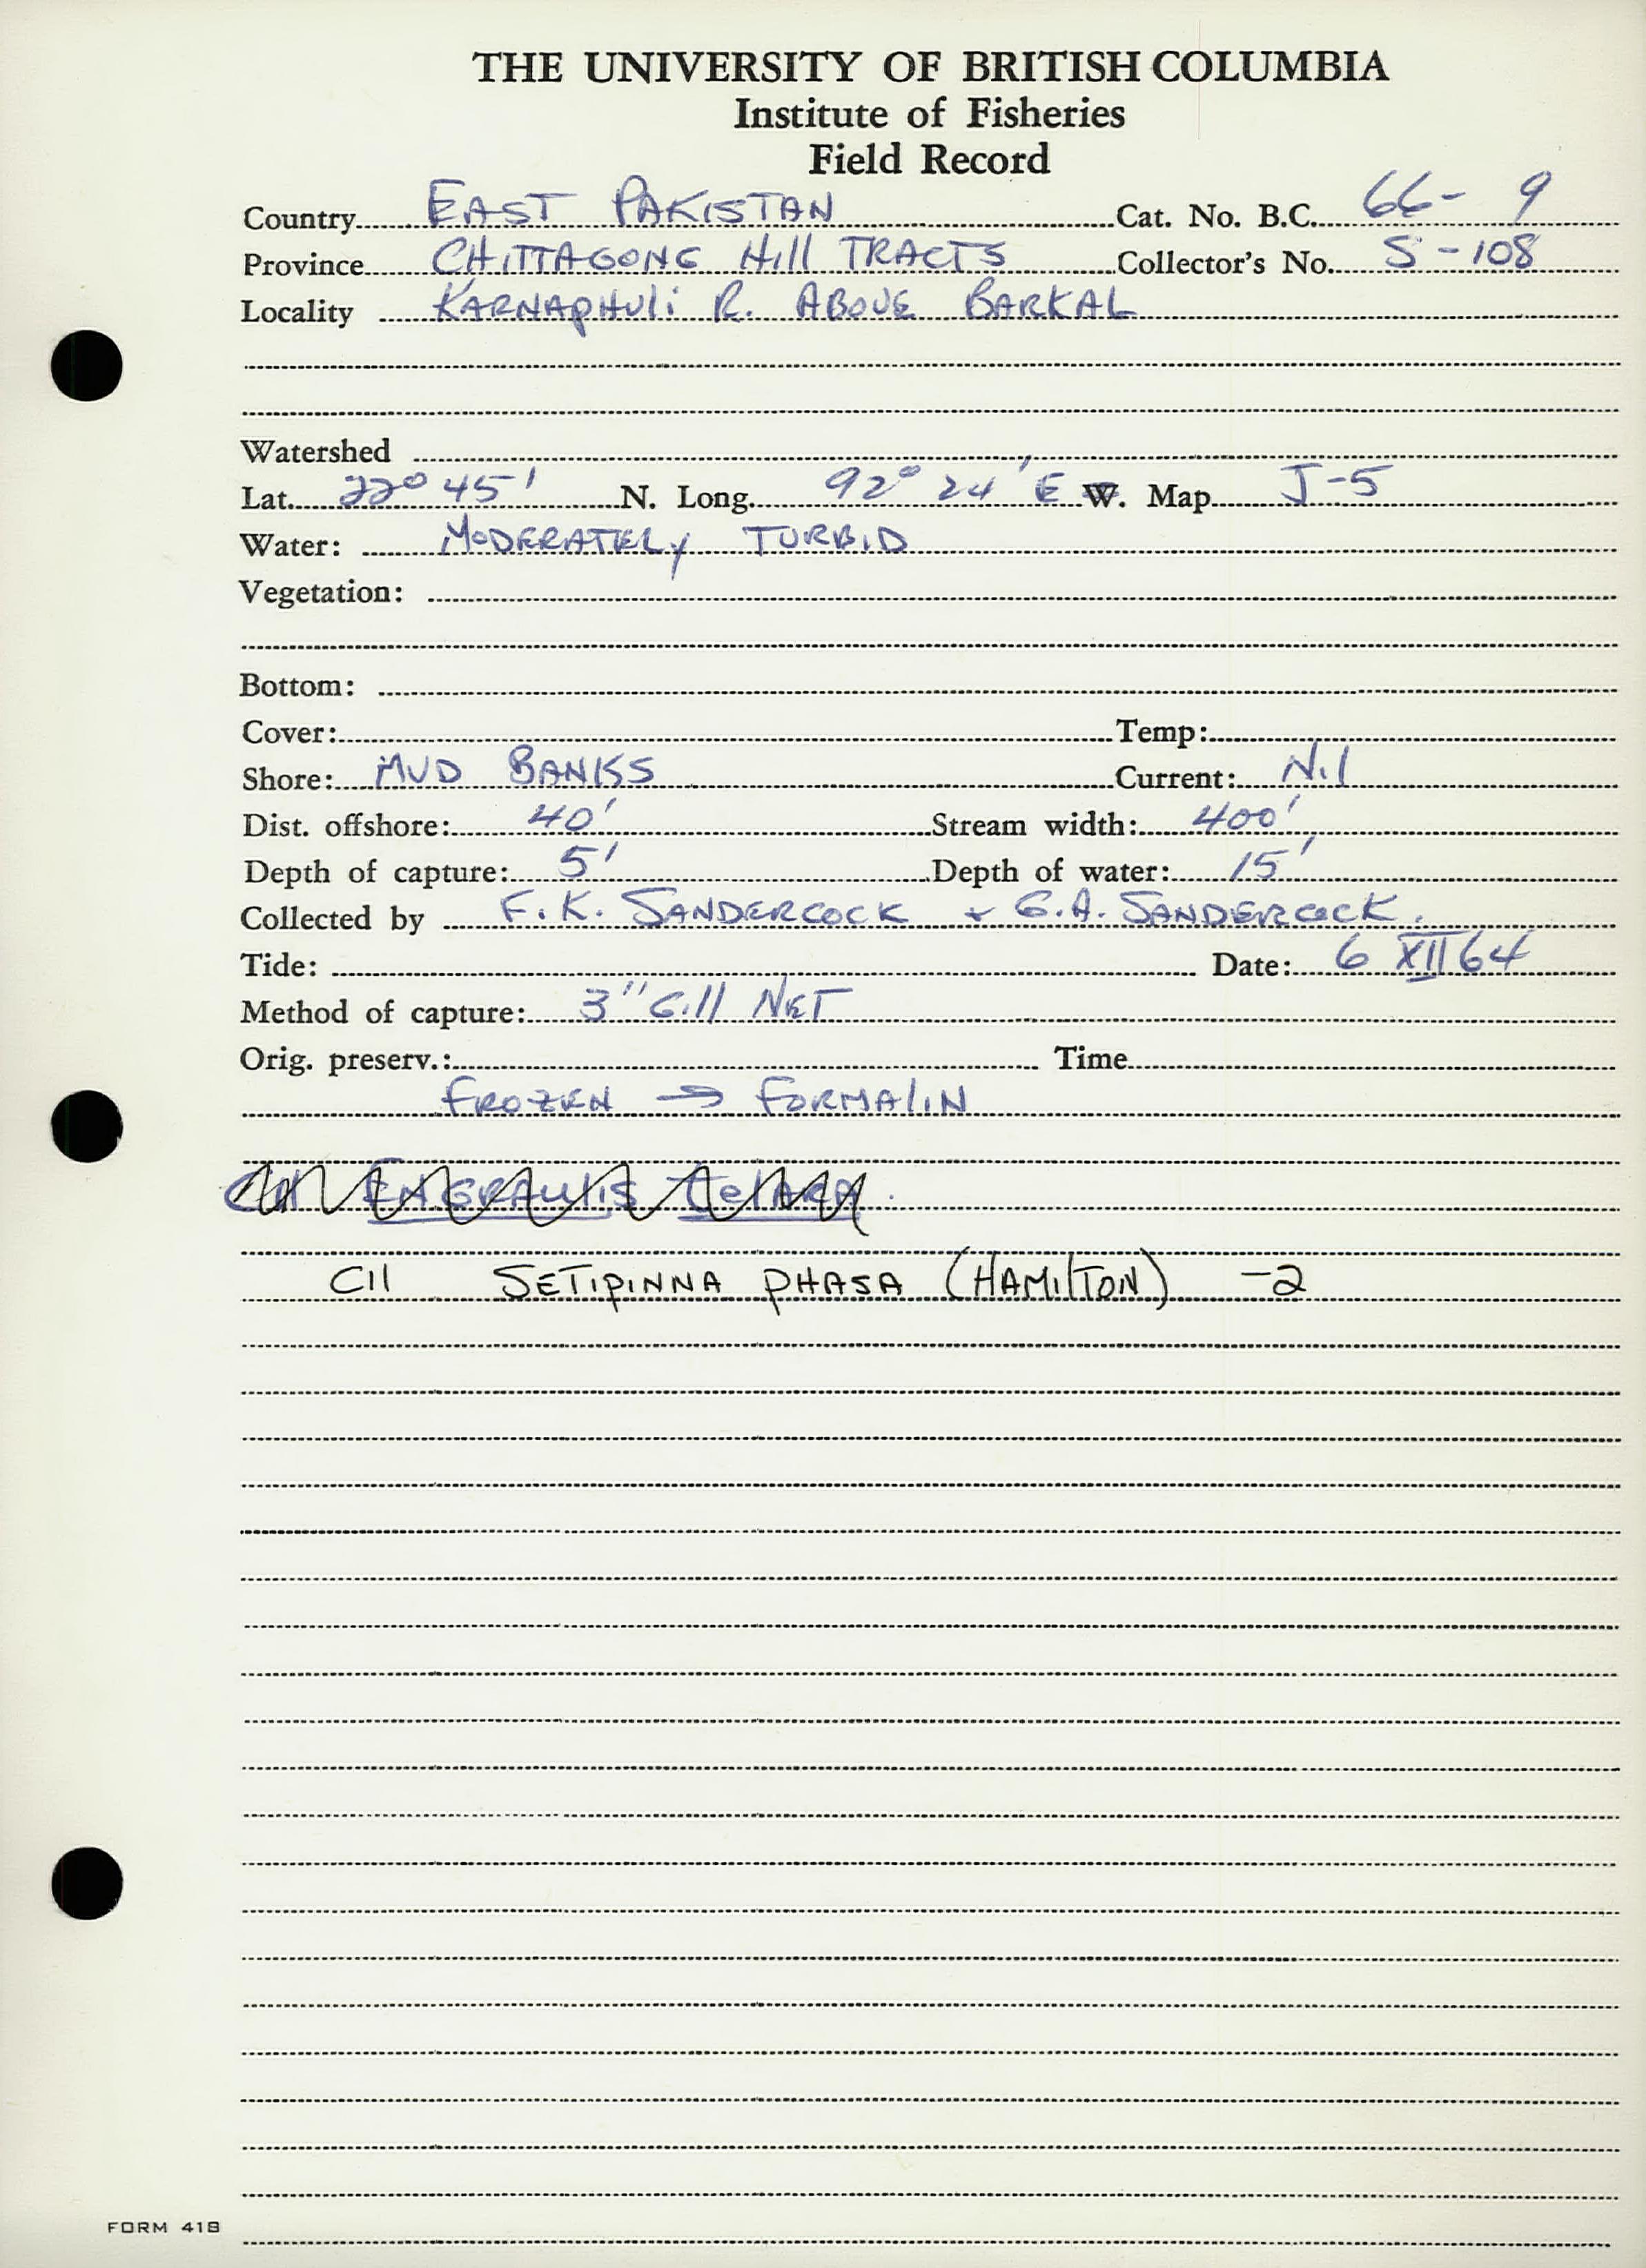 THE UNIVERSITY OF BRITISH COLUMBIA
Institute of Fisheries
Field Record
Country EAST PAKISTAN Cat. No. B.C. 66- 9
Province CHITTAGONG Hill TRACTS Collector's No. S-108
Locality KARNAPHULI R. ABOVE BARKAL
Watershed
Lat. 22° 45' N. Long. 92° 24' E W. Map J-5
Water: MODERATELY TURBID
Vegetation:
Bottom:
Cover: Temp:
Shore: MUD BANKS Current: Nil
Dist. offshore: 40' Stream width: 400'
Depth of capture: 5' Depth of water: 15'
Collected by F.K. SANDERCOCK + G.A. SANDERCOCK.
Tide: Date: 6 XII 64
Method of capture: 3" Gill NET
Orig. preserv.: Time
FROZEN → FORMALIN
C11 ENGRAULIS TELARA.
C11 SETIPINNA PHASA (HAMILTON) -2
FORM 41B